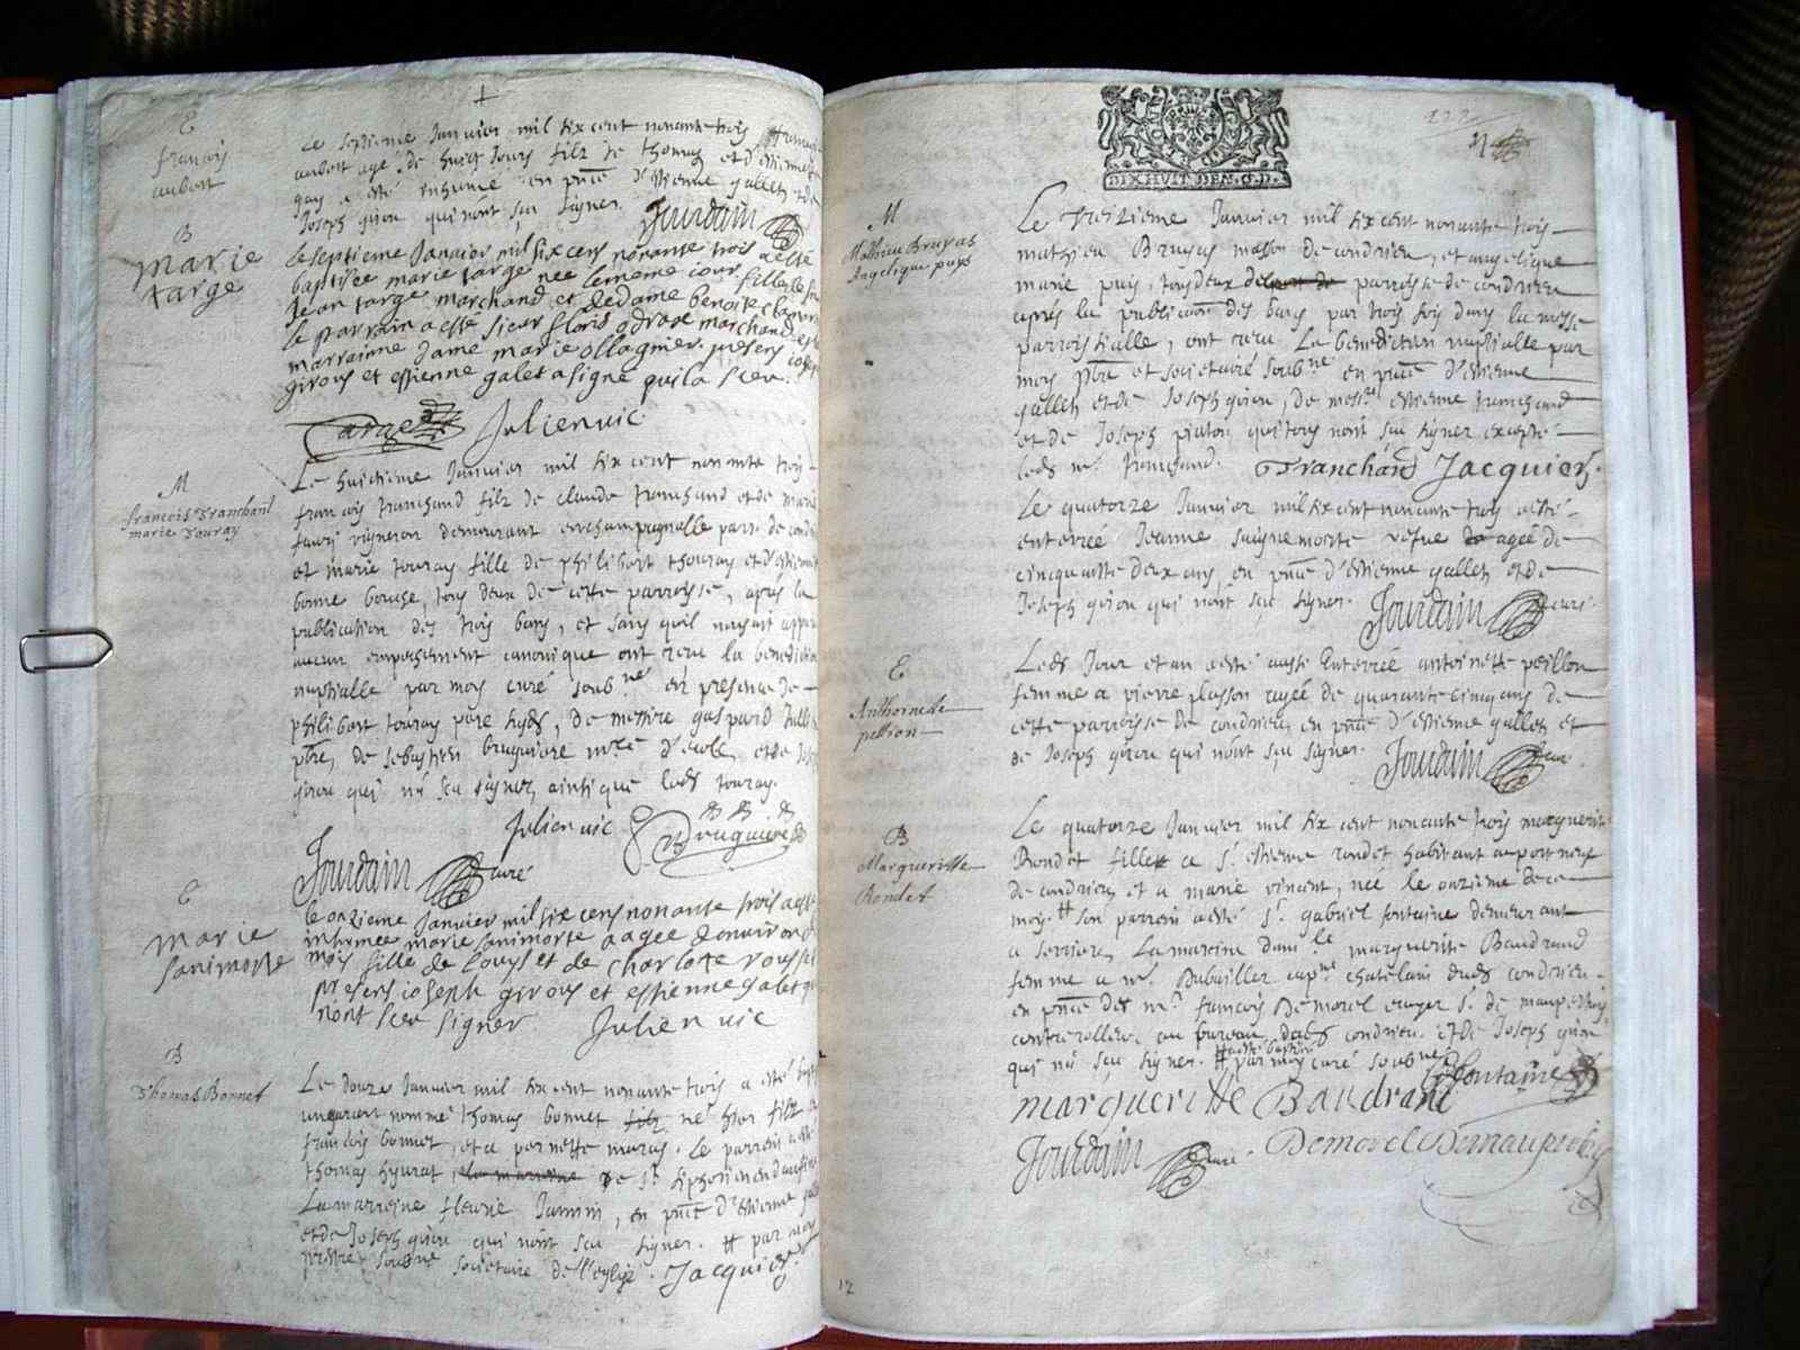 E
francois
aubert
Le septieme Janvier mil six cent nonante trois
aubert agé de huict Jours filz de thomas et d'estiennette
gay a esté inhumé en pñce d'estienne gallet et de
Joseph girou qui n'ont sçu signer. Jourdain
B
marie
targe
le septieme Janvier mil six cens nonante trois a esté
baptisee marie targe nee le meme iour fille de
Jean targe marchand et de dame benoite
le parrain a esté sieur floris odrase marchand et la
marrainne dame marie ollagnier presens ioseph
girous et estienne galet a signé qui la sceu.
targe Julien vic
M
francois Tranchant
marie Touray
Le huictieme Janvier mil six cent nonante trois
francois tranchand filz de claude tranchand et de marie
faury vigneron demeurant en champagnolle parr. de cond
et marie touray fille de philibert thouray et d'estienne
bonne bouge, tous deux de cette parroisse, aprés la
publication des trois bans, et sans qu'il nayait apparu
aucun empeschement canonique ont receu la benediction
nuptialle par moy curé soub.né en presence de
philibert touray pere husd, de messire gaspard Jull
pbre, de sebastien bruguiere mre d'ecole, et de Jos
girou qui n'a sçu signer, ainsi que leds touray.
Julien vic Bruguiere
Jourdain curé
E
marie
sanimorte
le onzieme Janvier mil six cens nonante trois a esté
inhumee marie sanimorte aagee d'environ
mois fille de Louys et de charlotte roussel
presens ioseph girous et estienne galet qui
n'ont sceu signer Julien vic
B
Thomas Bonnet
Le douze Janvier mil six cent nonante trois a esté bapt
un garcon nommé thomas bonnet filz né hier filz a
francois bonnet, et a pernette maras. Le parrein a esté
thomas hyurat, la marreine de st siphorien en daufiné
La marreine fleurie Jamin, en pñce d'estienne gallet
et de Joseph girou qui n'ont sceu signer. # par moy
prestre soub.né societaire de l'eglise. Jacquier
DIXHVIT DEN. G.D.
M
Mathieu Bruyas
Angelique puys
Le treizieme Janvier mil six cent nonante trois
mathieu Bruyas masson de condrieu, et angelique
marie puis, tous deux de parroisse de condrieu
aprés la publication des bans par trois fois dans la messe
parroissialle, ont receu La benediction nuptialle par
moy pbre et societairé soub.né en pñce d'estienne
gallet et de Joseph girou, de messre estienne tranchand
et de Joseph piaton qui tous n'ont sçu signer excepté
leds mr tranchand. Tranchand Jacquier
Le quatorze Janvier mil six cent nonante trois a esté
enterréé Jeanne saignemorte vefue agée de
cinquante deux ans, en pñce d'estienne gallet et de
Joseph girou qui n'ont sçu signer. Jourdain curé
E
Anthoinette
pellion
Leds Jour et an a esté aussi Enterréé antoinette peillon
femme a pierre plasson agéé de quarante cinq ans de
cette parroisse de condrieu en pñce d'estienne gallet et
de Joseph girou qui n'ont sçu signer. Jourdain curé
B
Margueritte
Rondet
Le quatorze Janvier mil six cent nonante trois marguerite
Rondet fille a sr estienne rondet habitant au port neuf
de condrieu et a marie vincent, née le onzieme de ce
moy # son parrein a esté sr gabriel fontaine demeurant
a serriere, La mareine dam.le marguerite Baudrand
femme a mr Dubailler capne chatelain duds condrieu
en pñce des mr francois Demorel ecuyer sr de maupertuis
contrerolleur au bureau duds condrieu et de Joseph girou
qui n'a sçu signer. # a esté baptisée par moy curé soub.né fontaine
margueritte Baudrant
Jourdain curé. Demorel
12